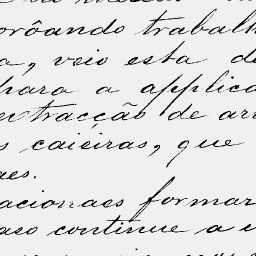 orôando trabalh
a, veio esta de
para a applica
ntracção de ar
s caieiras, que
aes.
acionaes formar
aso continue a